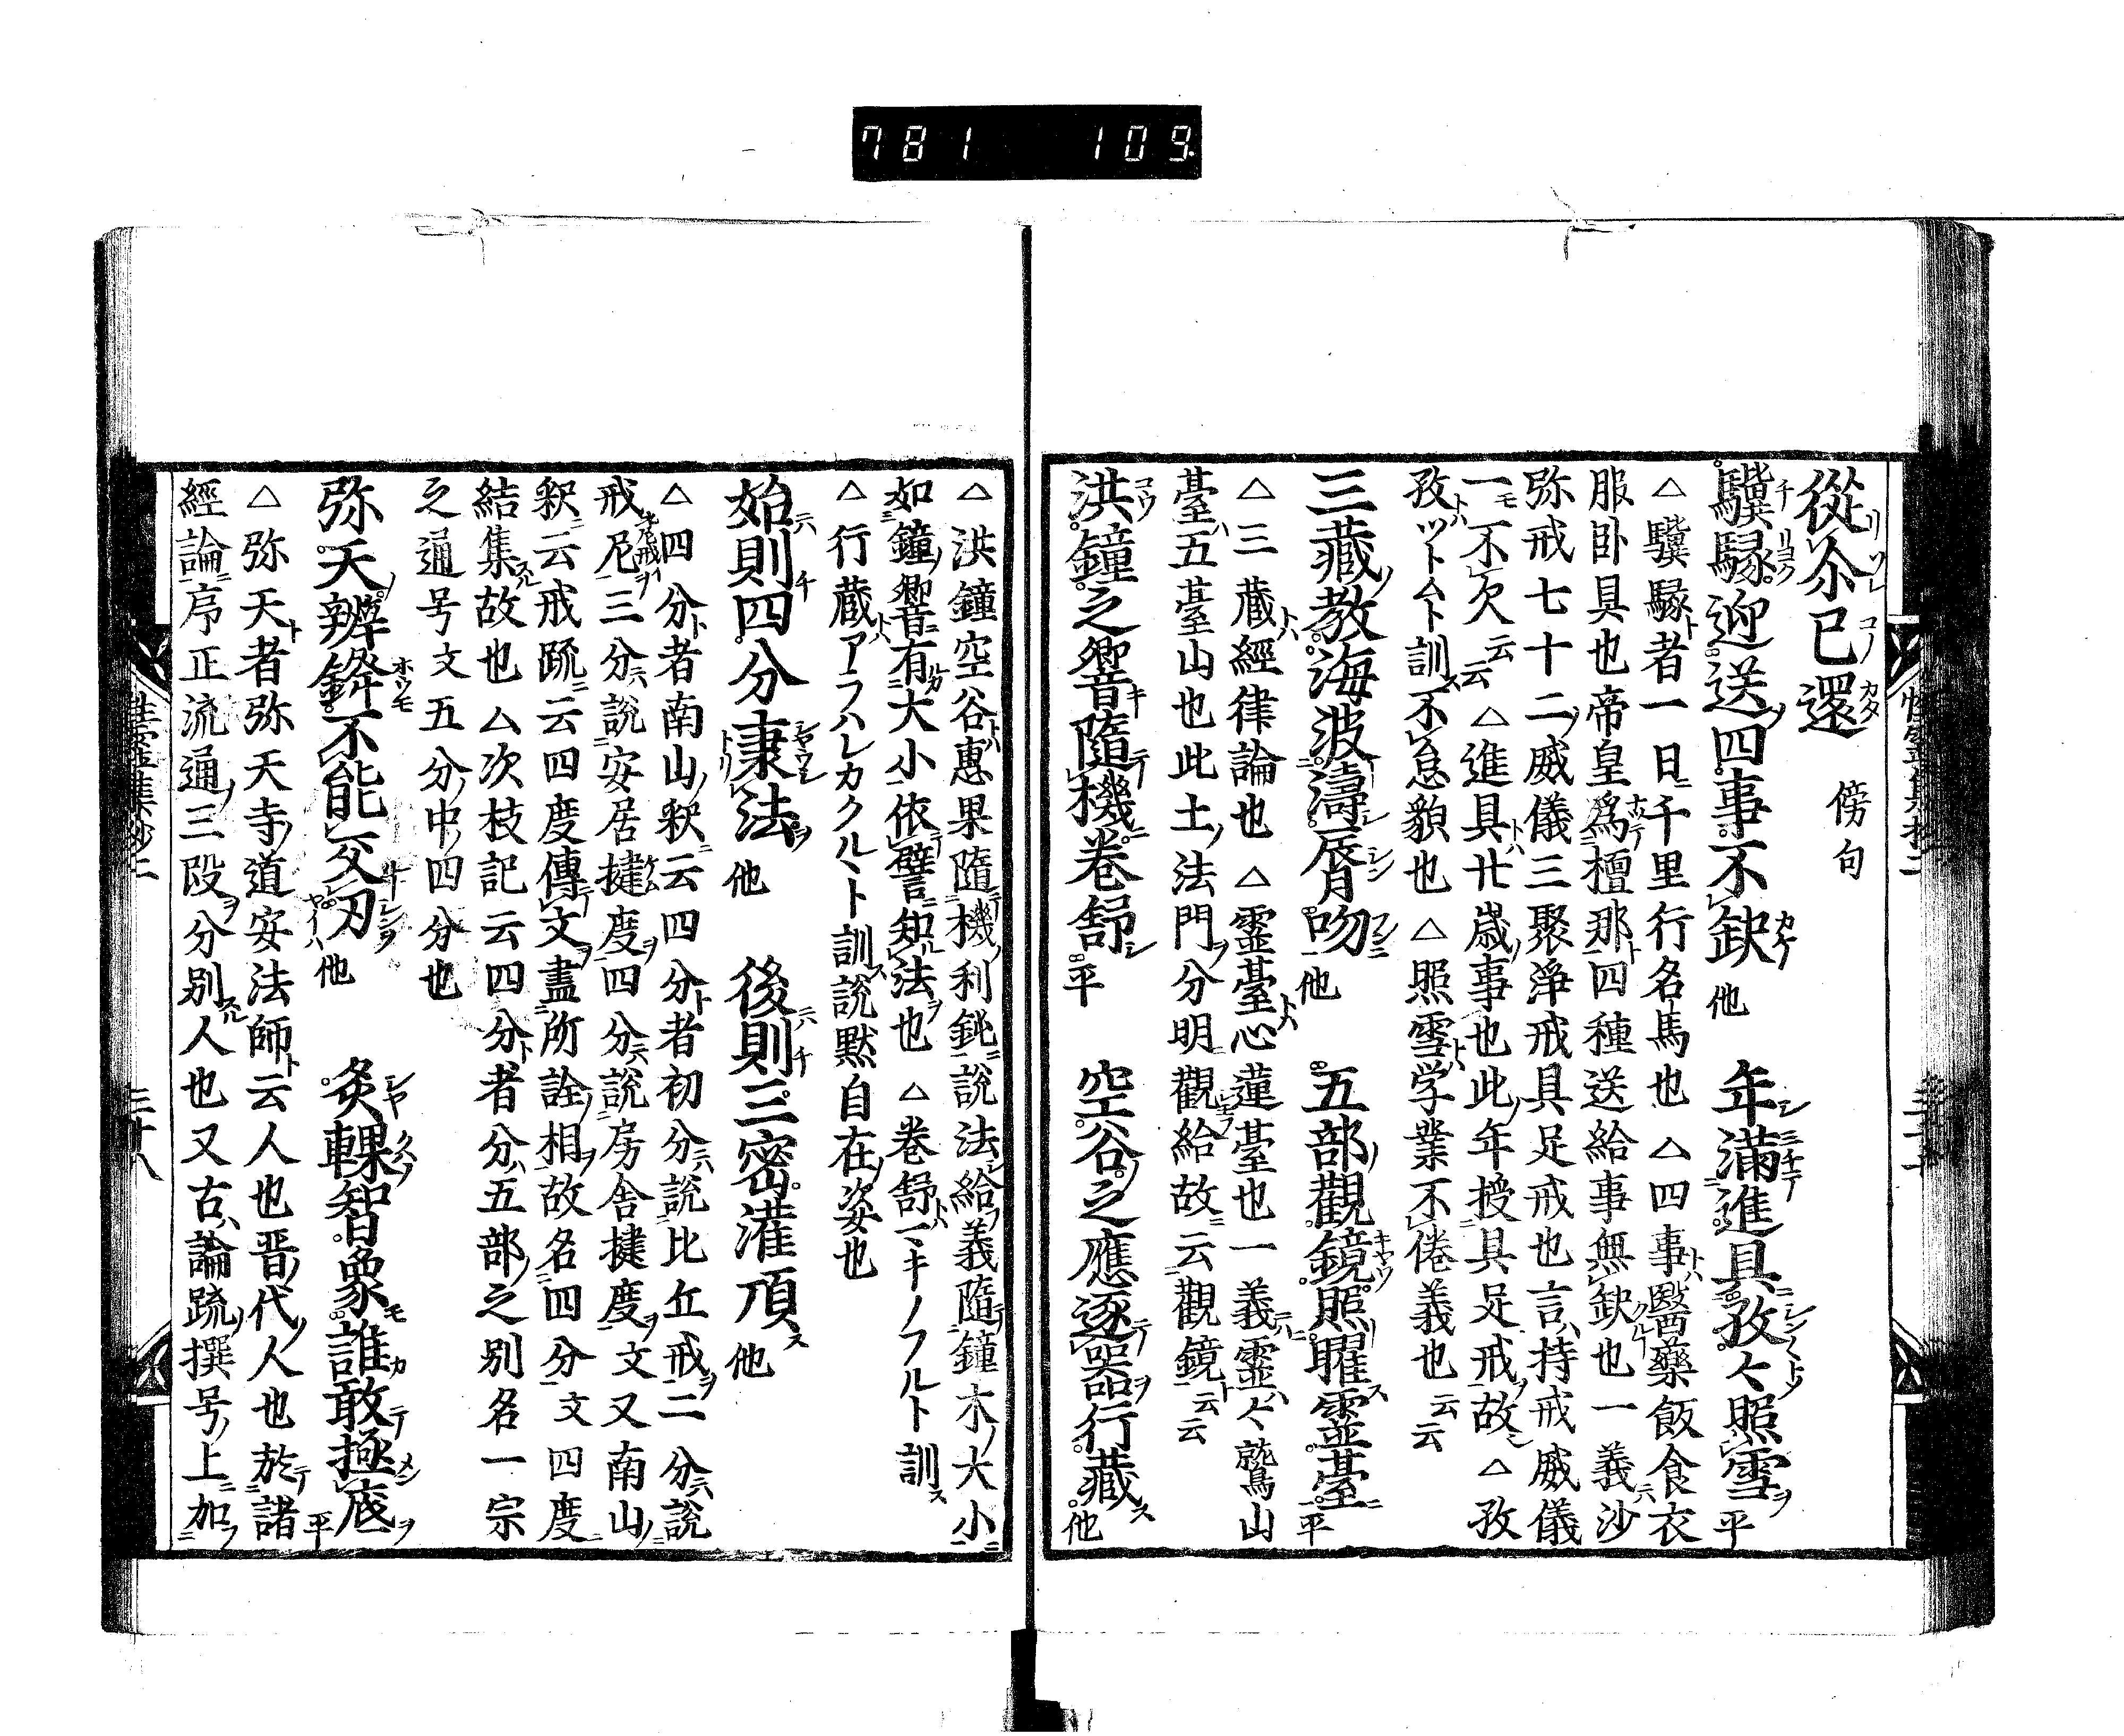 781 109
從尒已還 傍句
驥騄迎送四事不缺他 年滿進具孜〻照雪平
△驥騄者一日千里行名馬也△四事醫藥飯食衣
服卧具也帝皇爲檀那四種送給事無缺也一義沙
弥戒七十二威儀三聚淨戒具足戒也言持戒威儀
一不欠云云△進具廿歳事也此年授具足戒故△孜
孜ツトムト訓不怠貌也△照雪学業不倦義也云云
三藏教海波濤脣吻他 五部觀鏡照曜靈臺平
△三蔵經律論也△靈臺心蓮臺也一義靈〻鷲山
臺五臺山也此土法門分明觀給故云觀鏡云云
洪鐘之響隨機卷舒平 空谷之應逐器行藏他
△洪鐘空谷惠果隨機利鈍説法給義隨鐘木大小
如鐘響有大小依譬知法也△卷舒マキノフルト訓
△行蔵アラハレカクルヽト訓説黙自在姿也
始則四分秉法他 後則三密灌頂他
△四分者南山釈云四分者初分説比丘戒二分説
戒尼三分説安居揵度四分説房舎揵度文又南山
釈云戒䟽云四度傳文盡所詮相故名四分文四度
結集故也△次枝記云四分者分五部之别名一宗
之通号文五分中四分也
弥天辨鋒不能交刃他 炙輠智象誰敢極底平
△弥天者弥天寺道安法師云人也晋代人也於諸
經論序正流通三段分别人也又古論䟽撰号上加
性霊集鈔二 三十八